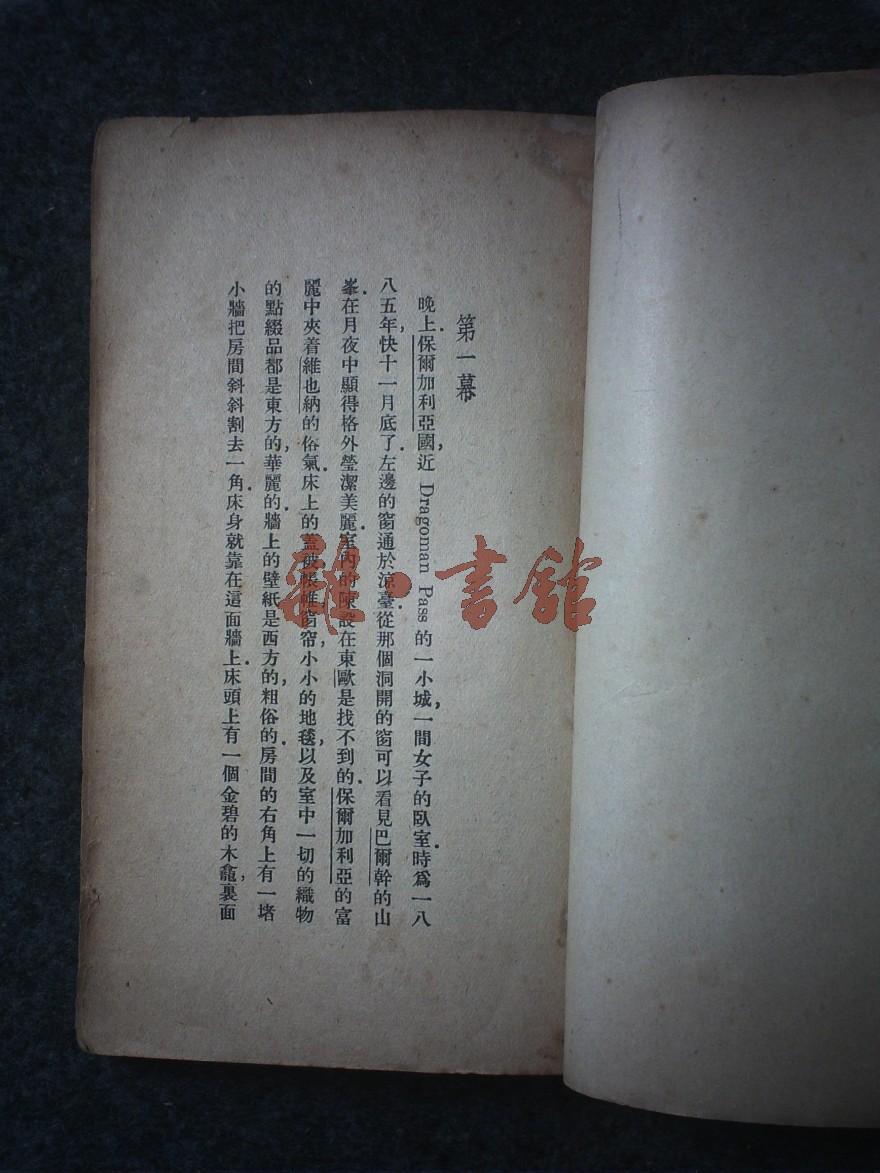 第一幕
晚上.保爾加利亞國,近 Dragoman Pass 的一小城,一間女子的臥室.時爲一八
八五年,快十一月底了.左邊的窗通於涼臺.從那個洞開的窗可以看見巴爾幹的山
峯.在月夜中顯得格外瑩潔美麗.室內的陳設在東歐是找不到的.保爾加利亞的富
麗中夾着維也納的俗氣.床上的蓋被,帳帷,窗帘,小小的地毯,以及室中一切的織物
的點綴品都是東方的,華麗的.牆上的壁紙是西方的,粗俗的.房間的右角上有一堵
小牆把房間斜斜割去一角.床身就靠在這面牆上.床頭上有一個金碧的木龕,裏面
雜·書館